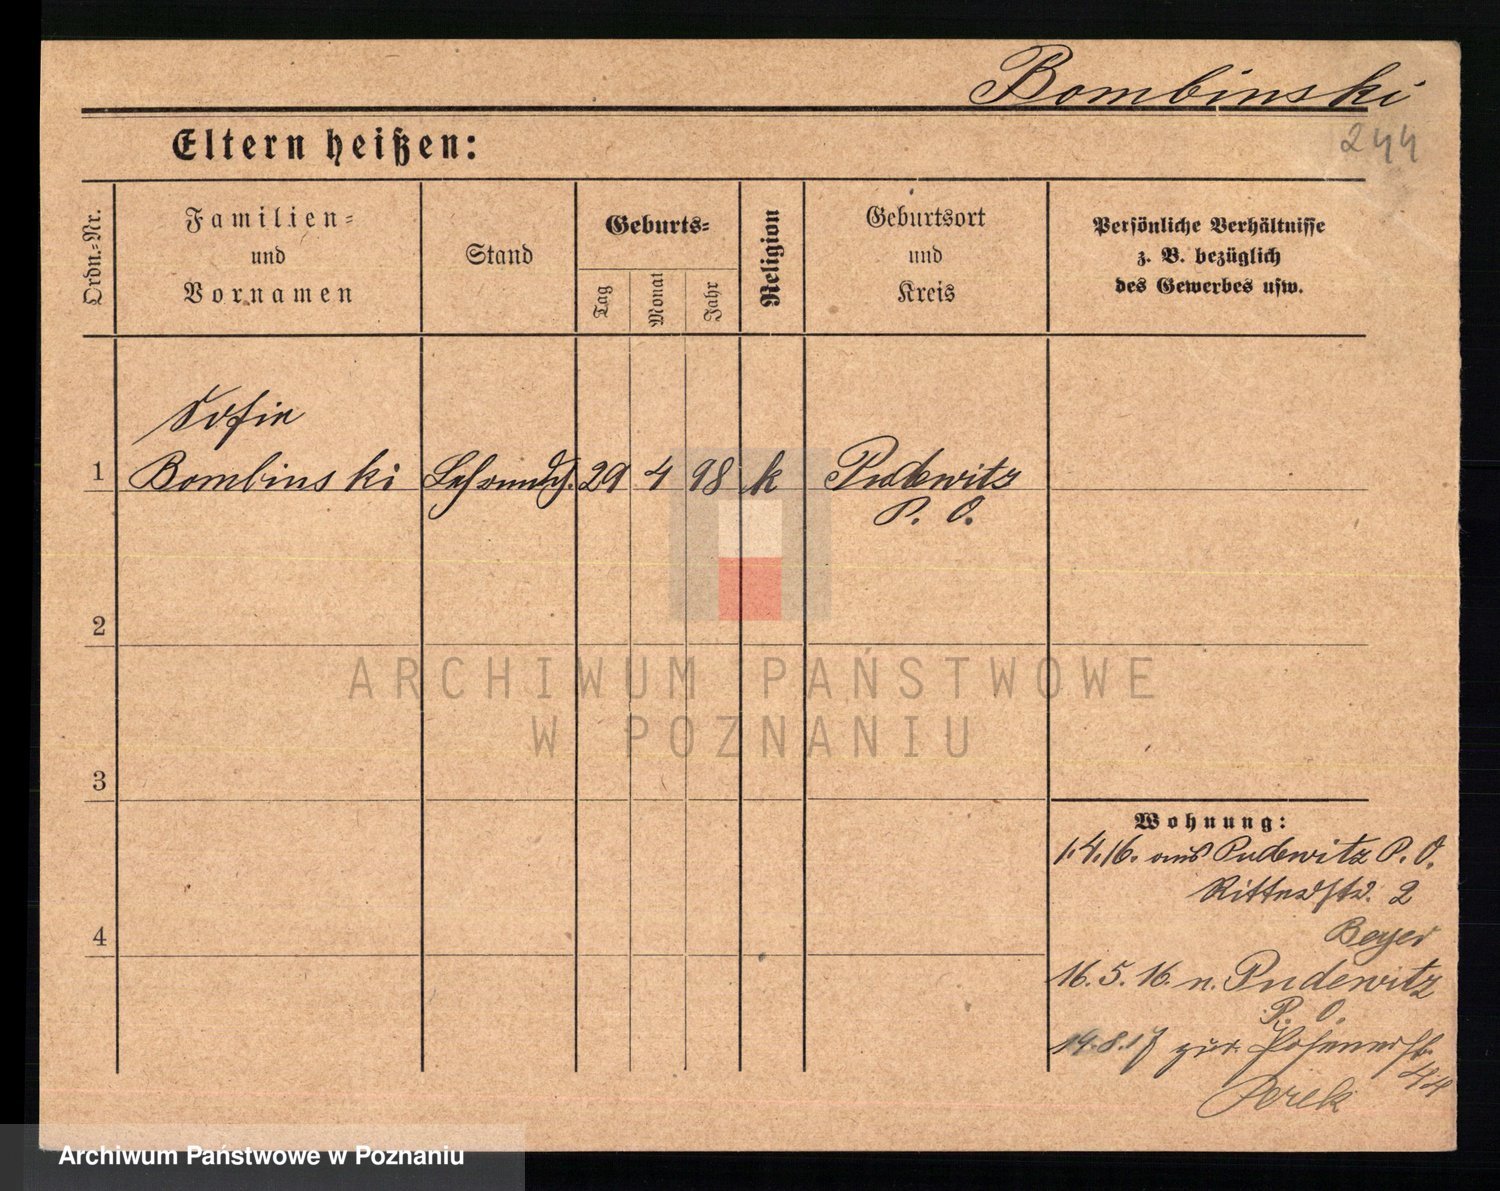 Bombinski
244
Eltern heißen:
Ordn.=Nr.
Familien=
und
Vornamen
Stand
Geburts=
Tag
Monat
Jahr
Religion
Geburtsort
und
Kreis
Persönliche Verhältnisse
z. B. bezüglich
des Gewerbes usw.
Sofie
1 Bombinski 29 4 98 k Pudewitz
P. O.
2
3
4
ARCHIWUM PAŃSTWOWE
W POZNANIU
Wohnung:
1.4.16. aus Pudewitz P. O.
Ritterstr. 2
Beyer
16.5.16. n. Pudewitz
P. O.
14.8.17 zur. Posenerstr.
44
Jerek
Archiwum Państwowe w Poznaniu